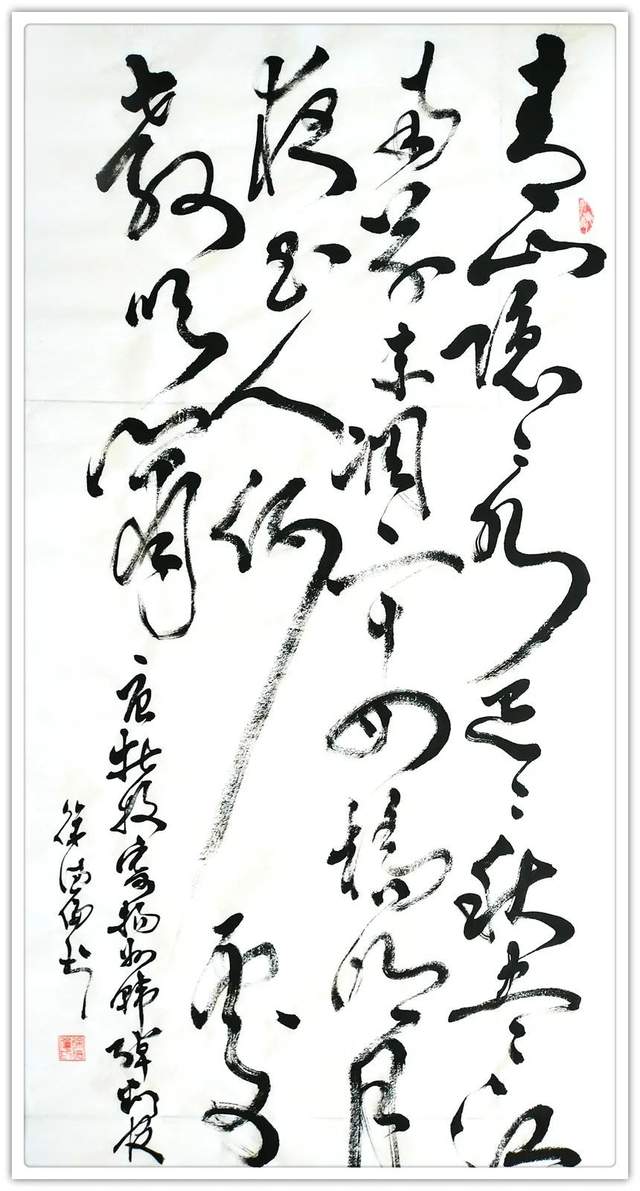 青山隐〻水迢〻秋尽江
南草未凋二十四橋明月
夜玉人何處
教吹簫
唐杜牧寄揚州韩绰判官
徐書